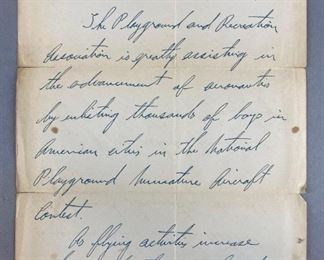 The Playground and Recreation
Association is greatly assisting in
the advancement of aeronautics
by enlisting thousands of boys in
American cities in the National
Playground Miniature Aircraft
Contest.
As flying activities increase